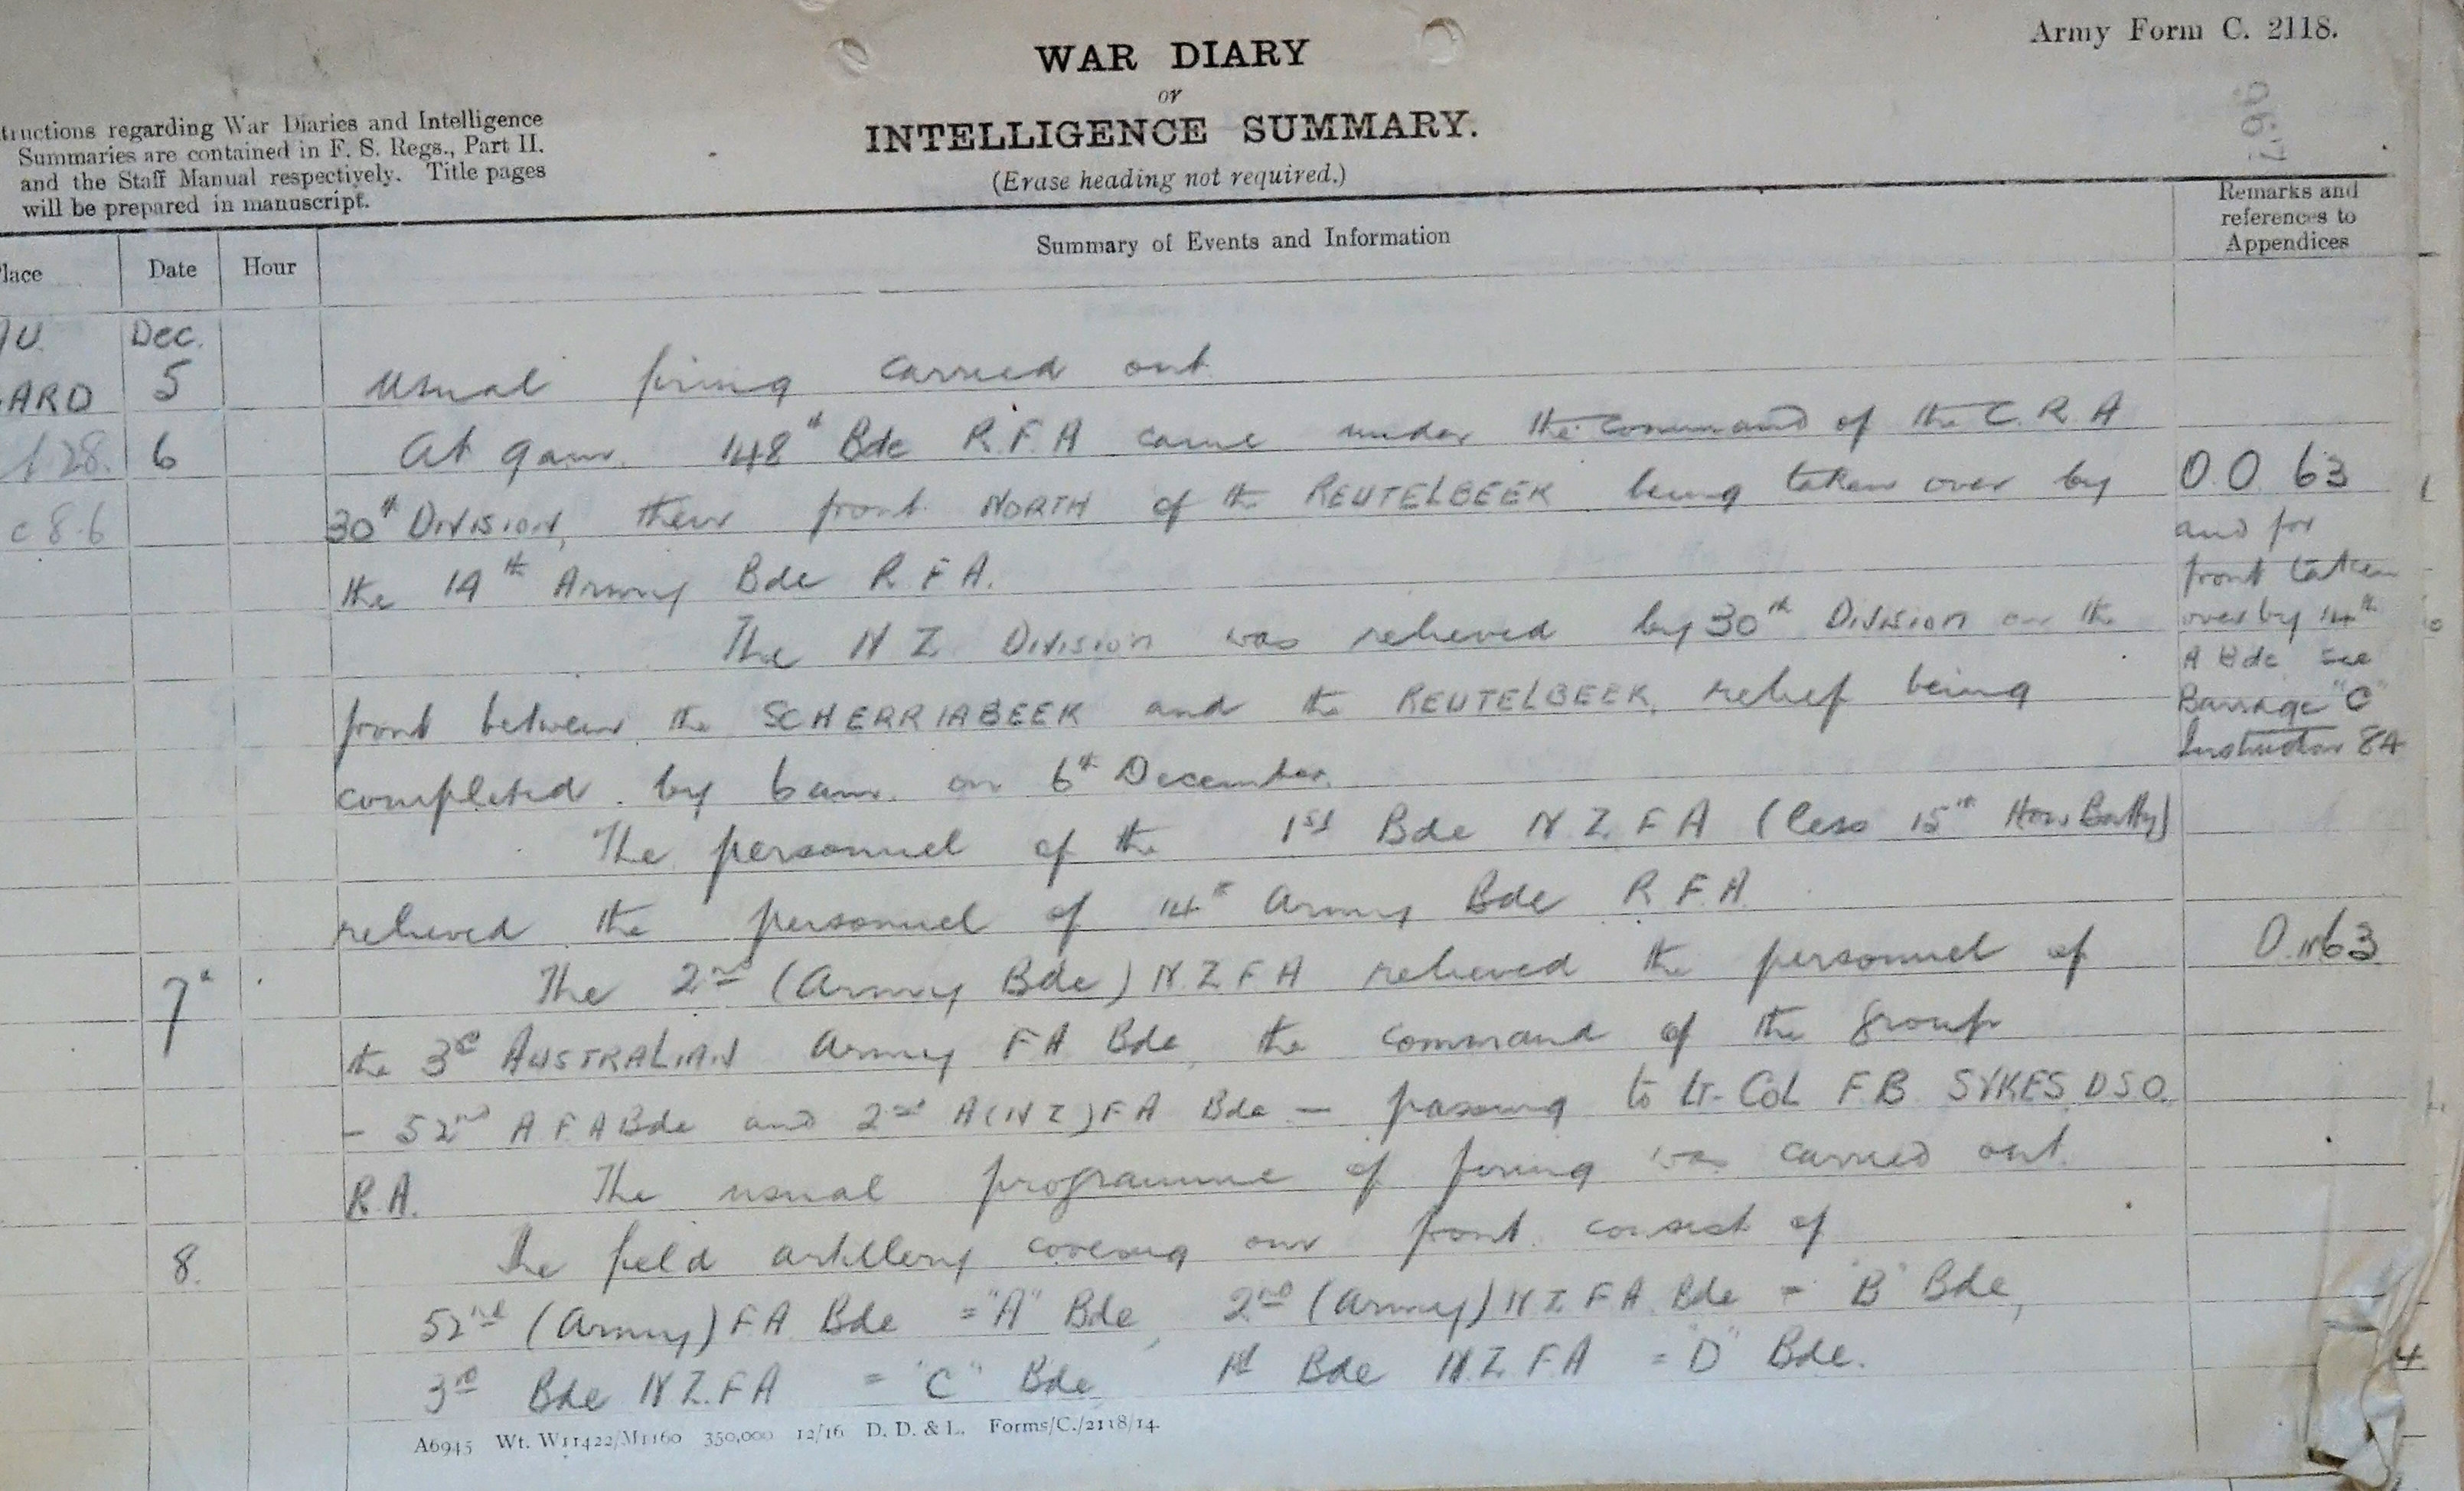 Army Form C. 2118.
WAR DIARY
or
INTELLIGENCE SUMMARY.
(Erase heading not required.)
tructions regarding War Diaries and Intelligence
Summaries are contained in F. S. Regs., Part II.
and the Staff Manual respectively. Title pages
will be prepared in manuscript.
lace
Date
Hour
Summary of Events and Information
Remarks and
references to
Appendices
Dec.
ARD 5 Usual firing carried out
28. 6 At 9 am. 148th Bde R.F.A came under the command of the C.R.A
c 8.6 30th DIVISION, their front NORTH of the REUTELBEEK being taken over by
the 14th Army Bde R.F.A.
The N Z DIVISION was relieved by 30th DIVISION on the
front between the SCHERRIABEEK and the REUTELBEEK, relief being
completed by 6 am. on 6th December.
The personnel of the 1st Bde N Z F A (less 15th How Batty)
relieved the personnel of 14th Army Bde R.F.A.
7th The 2nd (Army Bde) N.Z.F.A relieved the personnel of
the 3rd AUSTRALIAN Army F A Bde, the command of the group
- 52nd A F A Bde and 2nd A (N Z) F A Bde - passing to Lt-Col F.B SYKES, D S O.
R.A. The usual programme of firing was carried out.
8. The field artillery covering our front consist of
52nd (Army) F.A. Bde = "A" Bde, 2nd (Army) N Z F A Bde = "B" Bde,
3rd Bde N.Z.F.A = "C" Bde 1st Bde N.Z.F.A = "D" Bde.
O.O. 63
and for
front taken
over by 14th
A Bde see
Barrage "C"
Instruction 84
63
4
A6945 Wt. W11422/M1160 350,000 12/16 D. D. & L. Forms/C./2118/14.